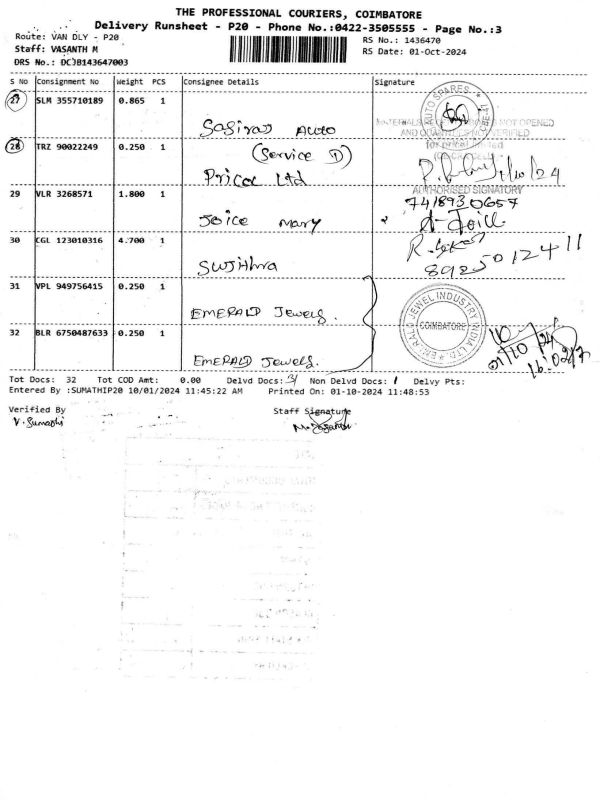 THE PROFESSIONAL COURIERS, COIMBATORE
Delivery Runsheet - P20 - Phone No.:0422-3505555 - Page No.:3
Route: VAN DLY - P20
RS No.: 1436470
Staff: VASANTH M
RS Date: 01-Oct-2024
DRS No.: DCJB143647003
S No Consignment No Weight PCS Consignee Details Signature
27 SLM 355710189 0.865 1 Sasiraj Auto
AUTO SPARES
28 TRZ 90022249 0.250 1 (Service D)
Pricol Ltd
AUTHORISED SIGNATORY
29 VLR 3268571 1.800 1 Joice mary
7418930657
30 CGL 123010316 4.700 1 Sujithra
8925012411
31 VPL 949756415 0.250 1 EMERALD Jewels.
EMERALD JEWEL INDUSTRY INDIA LTD
COIMBATORE
32 BLR 6750487633 0.250 1 EMERALD Jewels.
Tot Docs: 32 Tot COD Amt: 0.00 Delvd Docs: 31 Non Delvd Docs: 1 Delvy Pts:
Entered By :SUMATHIP20 10/01/2024 11:45:22 AM Printed On: 01-10-2024 11:48:53
Verified By Staff Signature
V. Sumathi